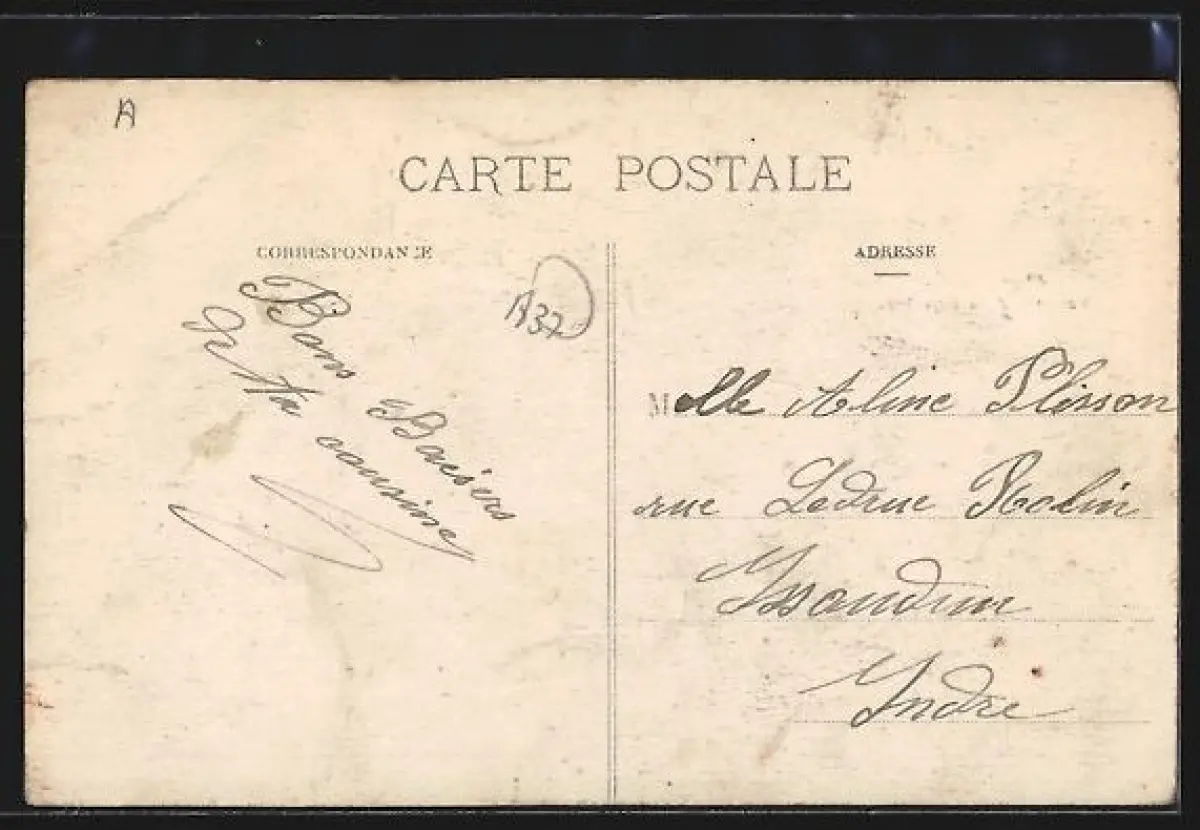 A
CARTE POSTALE
CORRESPONDANCE
ADRESSE
A37
Bons Baisers
ta cousine
Melle Aline Plisson
rue Ledrue Rolin
Issoudun
Indre